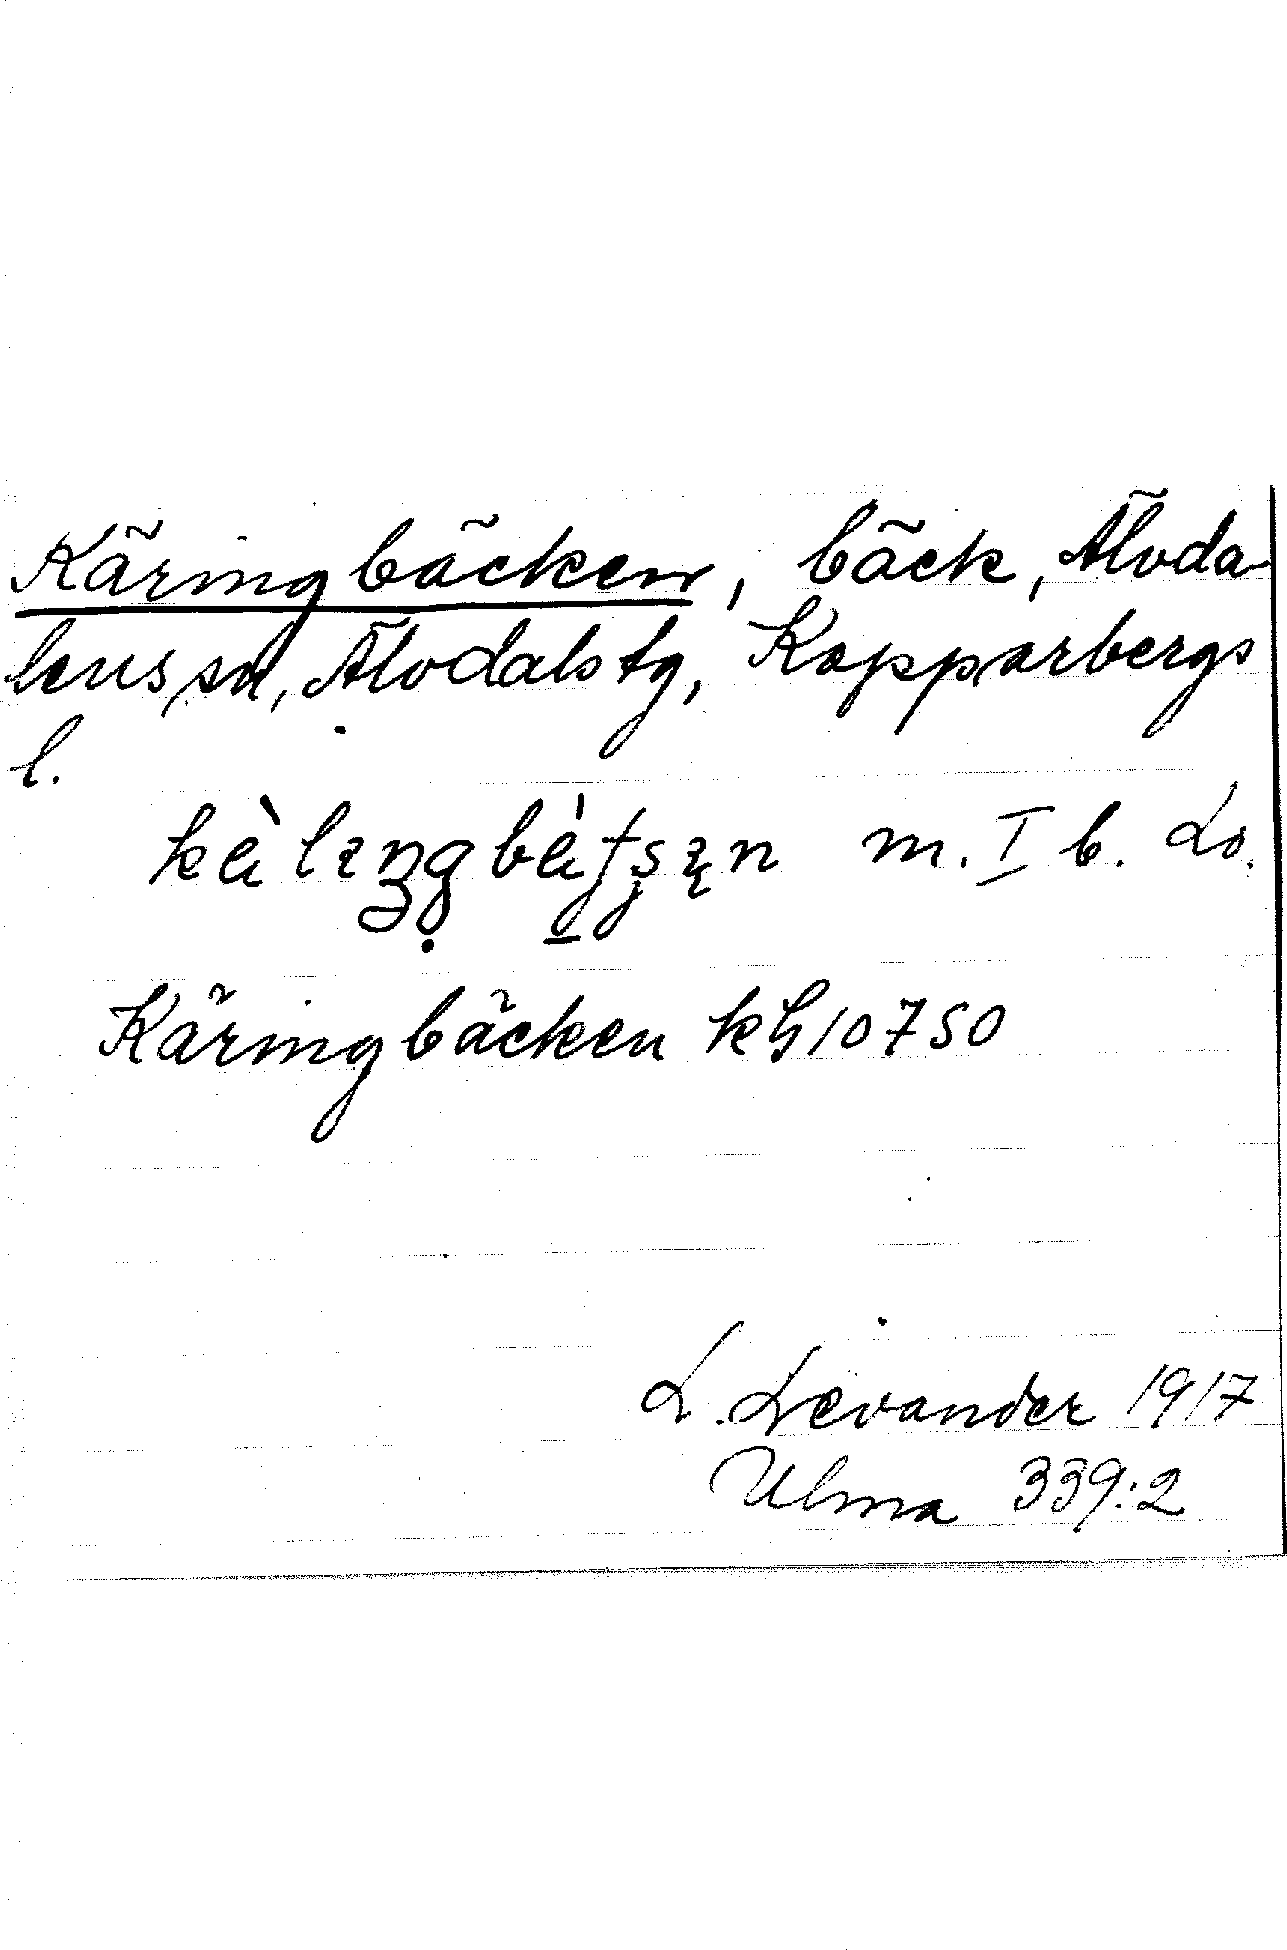 Käringbäcken, bäck, Älvda-
lens sn, Älvdals tg, Kopparbergs
l.
m. I b. Lo.
Käringbäcken kh 10750
L. Levander 1917
Ulma 339:2